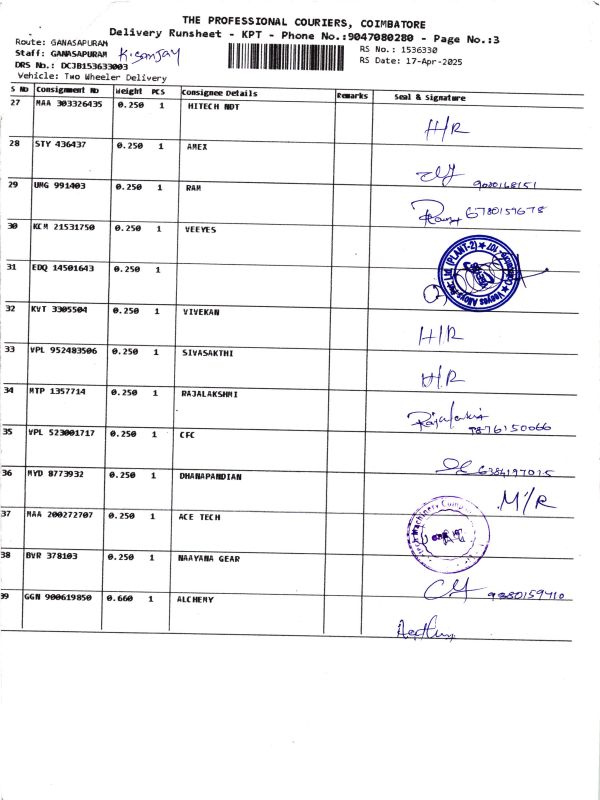 THE PROFESSIONAL COURIERS, COIMBATORE
Delivery Runsheet - KPT - Phone No.:9047080280 - Page No.:3
Route: GANASAPURAM
RS No.: 1536330
Staff: GANASAPURAM K. Sanjay
RS Date: 17-Apr-2025
DRS No.: DCJB153633003
Vehicle: Two Wheeler Delivery
S No Consignment No Weight PCS Consignee Details Remarks Seal & Signature
27 MAA 303326435 0.250 1 HITECH NDT
H/R
28 STY 436437 0.250 1 AMEX
9080168151
29 UMG 991403 0.250 1 RAM
6780159678
30 KCM 21531750 0.250 1 VEEYES
Veeyes Alloys Pvt. Ltd. (PLANT-2)
31 EDQ 14501643 0.250 1
32 KVT 3305504 0.250 1 VIVEKAN
H/R
33 VPL 952483506 0.250 1 SIVASAKTHI
H/R
34 MTP 1357714 0.250 1 RAJALAKSHMI
Rajalakshmi
7876150066
35 VPL 523001717 0.250 1 CFC
6384197015
36 MYD 8773932 0.250 1 DHANAPANDIAN
M/R
37 MAA 200272707 0.250 1 ACE TECH
38 BVR 378103 0.250 1 NAAYANA GEAR
9380159710
39 GGN 900619850 0.660 1 ALCHEMY